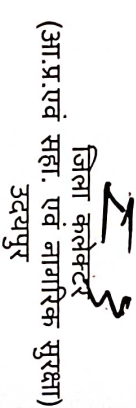 जिला कलेक्टर
(आ.प्र.एवं सहा. एवं नागरिक सुरक्षा)
उदयपुर